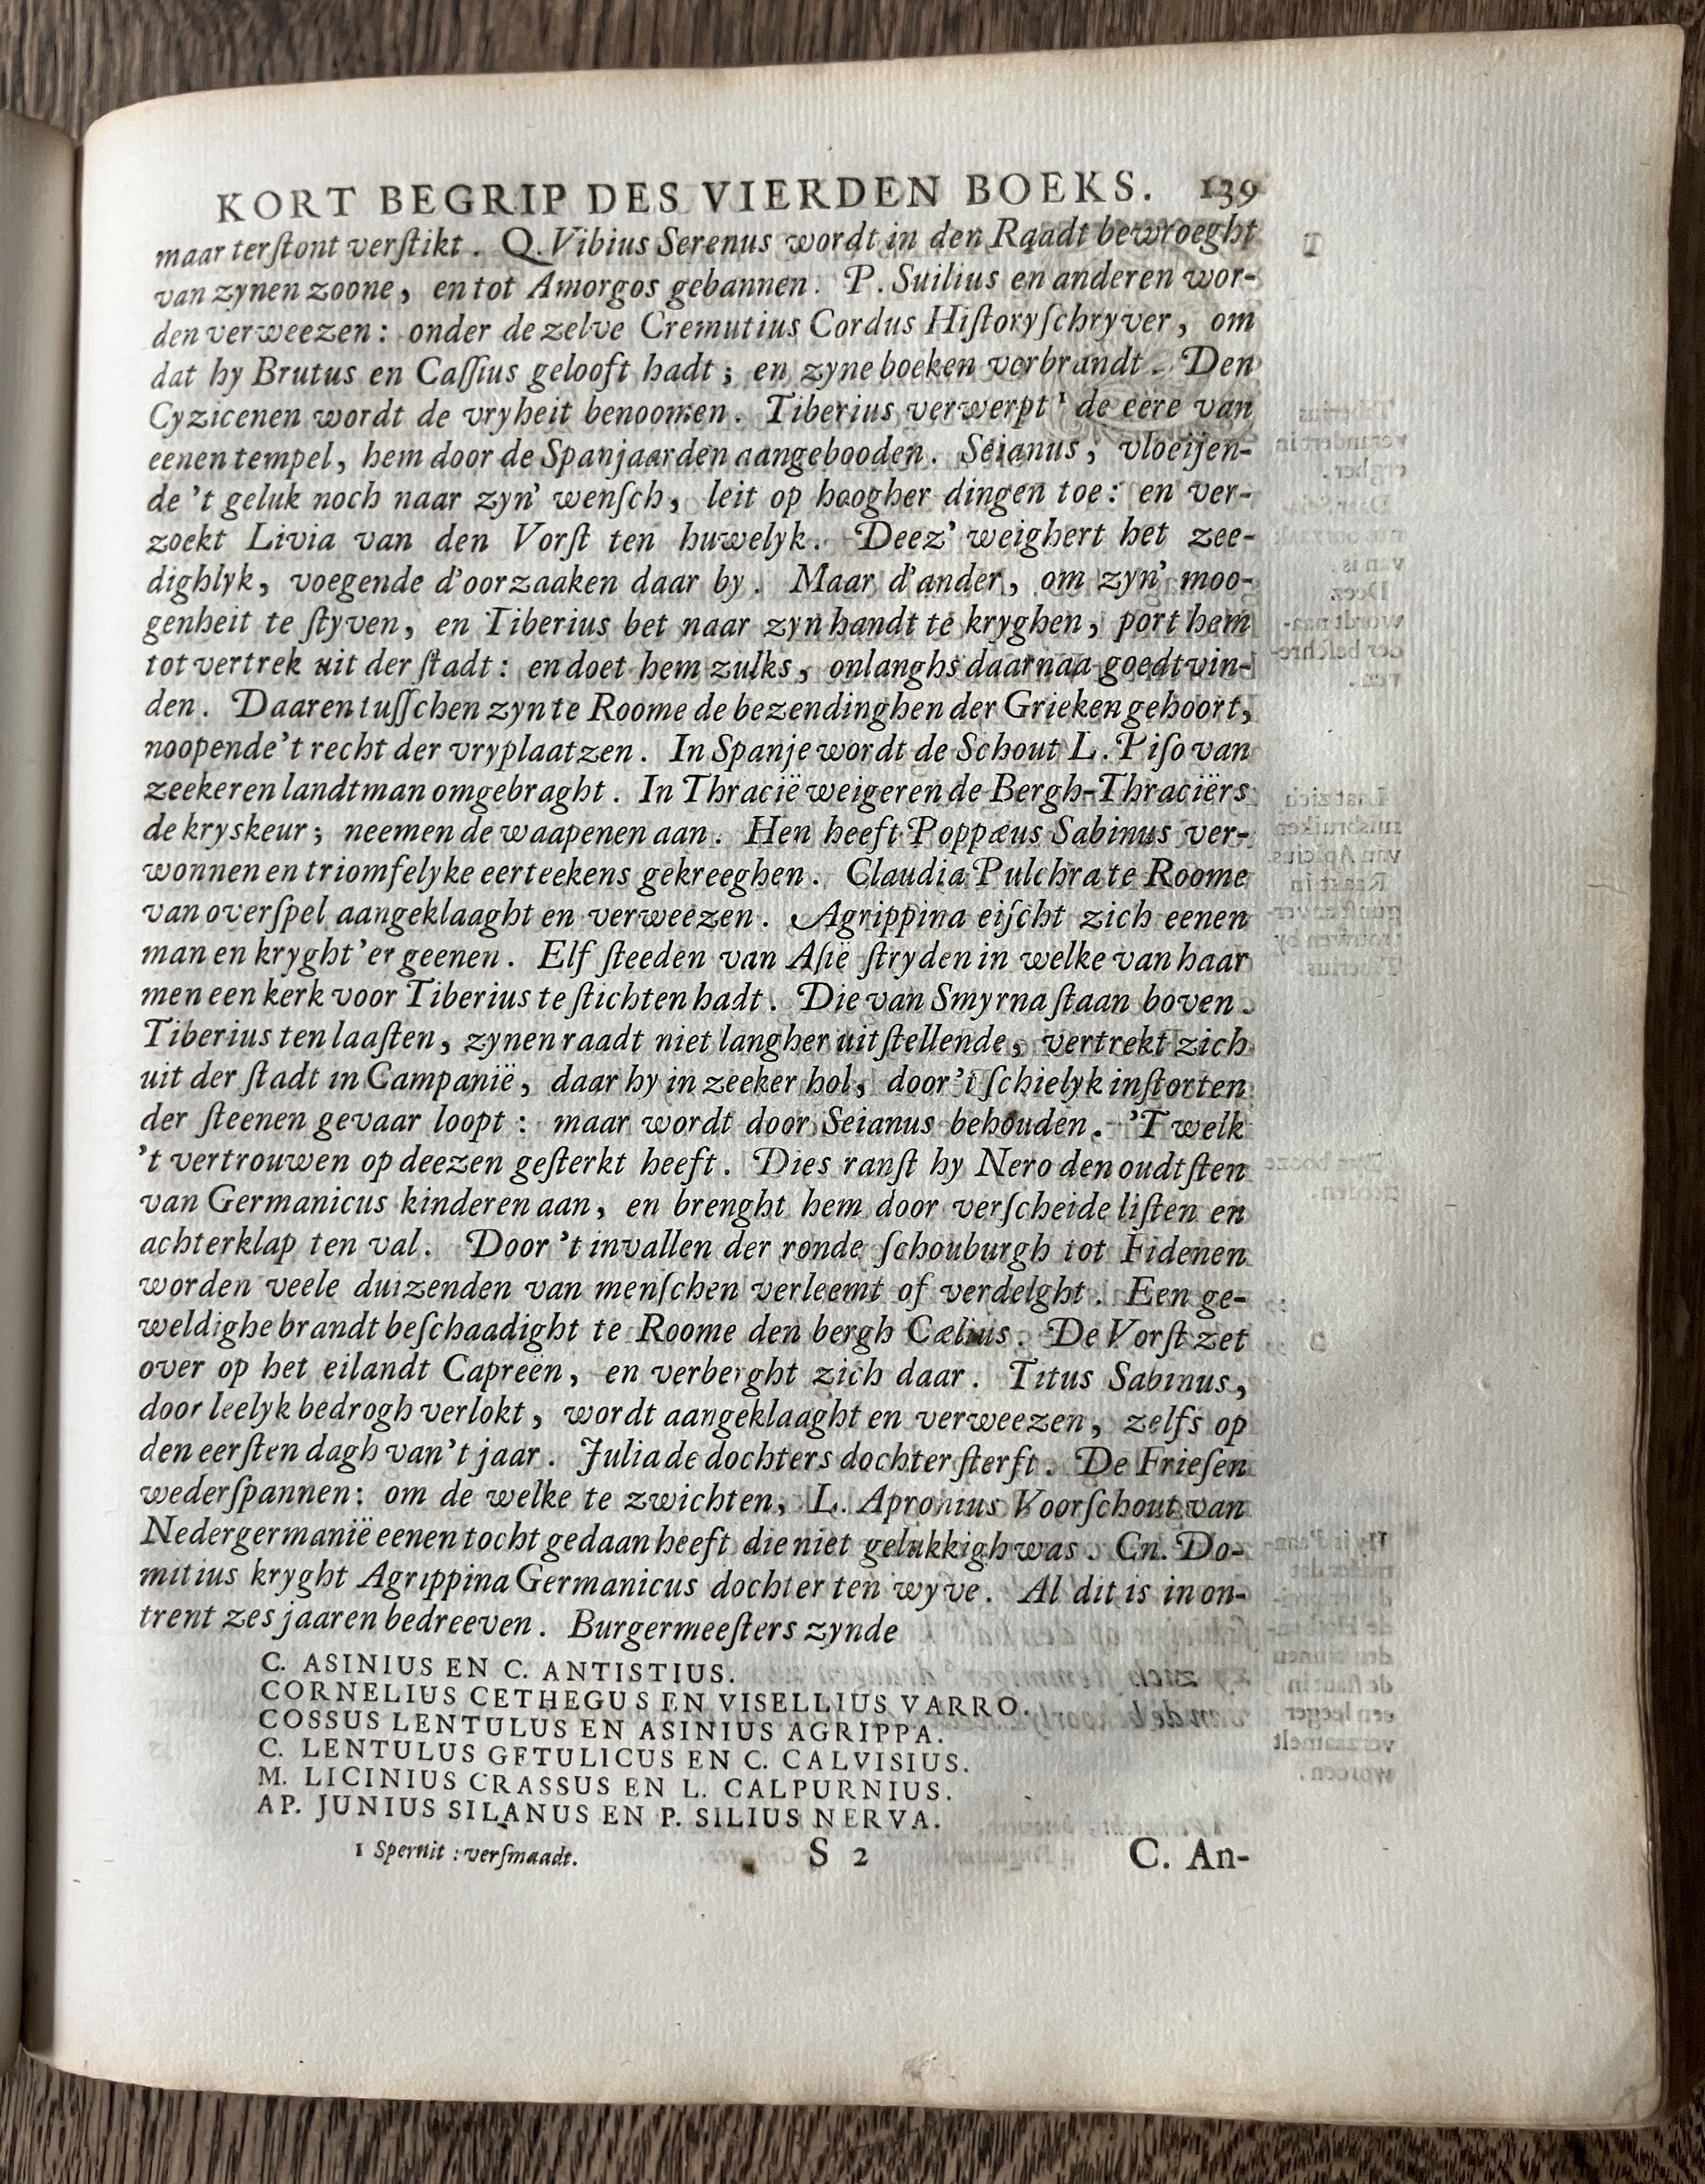 KORT BEGRIP DES VIERDEN BOEKS. 139
maar terſtont verſtikt. Q. Vibius Serenus wordt in den Raadt bewroeght
van zynen zoone, en tot Amorgos gebannen. P. Suilius en anderen wor-
den verweezen: onder de zelve Cremutius Cordus Hiſtoryſchryver, om
dat hy Brutus en Caſſius gelooft hadt; en zyne boeken verbrandt. Den
Cyzicenen wordt de vryheit benoomen. Tiberius verwerpt ¹ de eere van
eenen tempel, hem door de Spanjaarden aangebooden. Seianus, vloeijen-
de 't geluk noch naar zyn' wenſch, leit op hoogher dingen toe: en ver-
zoekt Livia van den Vorſt ten huwelyk. Deez' weighert het zee-
dighlyk, voegende d'oorzaaken daar by. Maar d'ander, om zyn' moo-
genheit te ſtyven, en Tiberius bet naar zyn handt te kryghen, port hem
tot vertrek uit der ſtadt: en doet hem zulks, onlanghs daarnaa goedtvin-
den. Daarentuſſchen zyn te Roome de bezendinghen der Grieken gehoort,
noopende 't recht der vryplaatzen. In Spanje wordt de Schout L. Piſo van
zeekeren landtman omgebraght. In Thracië weigeren de Bergh-Thraciërs
de kryskeur; neemen de waapenen aan. Hen heeft Poppæus Sabinus ver-
wonnen en triomfelyke eerteekens gekreeghen. Claudia Pulchra te Roome
van overſpel aangeklaaght en verweezen. Agrippina eiſcht zich eenen
man en kryght'er geenen. Elf ſteeden van Aſië ſtryden in welke van haar
men een kerk voor Tiberius te ſtichten hadt. Die van Smyrna ſtaan boven.
Tiberius ten laaſten, zynen raadt niet langher uitſtellende, vertrekt zich
uit der ſtadt in Campanië, daar hy in zeeker hol, door 't ſchielyk inſtorten
der ſteenen gevaar loopt: maar wordt door Seianus behouden. 'T welk
't vertrouwen op deezen geſterkt heeft. Dies ranſt hy Nero den oudtſten
van Germanicus kinderen aan, en brenght hem door verſcheide liſten en
achterklap ten val. Door 't invallen der ronde ſchouburgh tot Fidenen
worden veele duizenden van menſchen verleemt of verdelght. Een ge-
weldighe brandt beſchaadight te Roome den bergh Cælius. De Vorſt zet
over op het eilandt Capreën, en verberght zich daar. Titus Sabinus,
door leelyk bedrogh verlokt, wordt aangeklaaght en verweezen, zelfs op
den eerſten dagh van't jaar. Julia de dochters dochter ſterft. De Frieſen
wederſpannen: om de welke te zwichten, L. Apronius Voorſchout van
Nedergermanië eenen tocht gedaan heeft die niet gelukkigh was. Cn. Do-
mitius kryght Agrippina Germanicus dochter ten wyve. Al dit is in on-
trent zes jaaren bedreeven. Burgermeeſters zynde
C. ASINIUS EN C. ANTISTIUS.
CORNELIUS CETHEGUS EN VISELLIUS VARRO.
COSSUS LENTULUS EN ASINIUS AGRIPPA.
C. LENTULUS GETULICUS EN C. CALVISIUS.
M. LICINIUS CRASSUS EN L. CALPURNIUS.
AP. JUNIUS SILANUS EN P. SILIUS NERVA.
1 Spernit: verſmaadt. S 2 C. An-